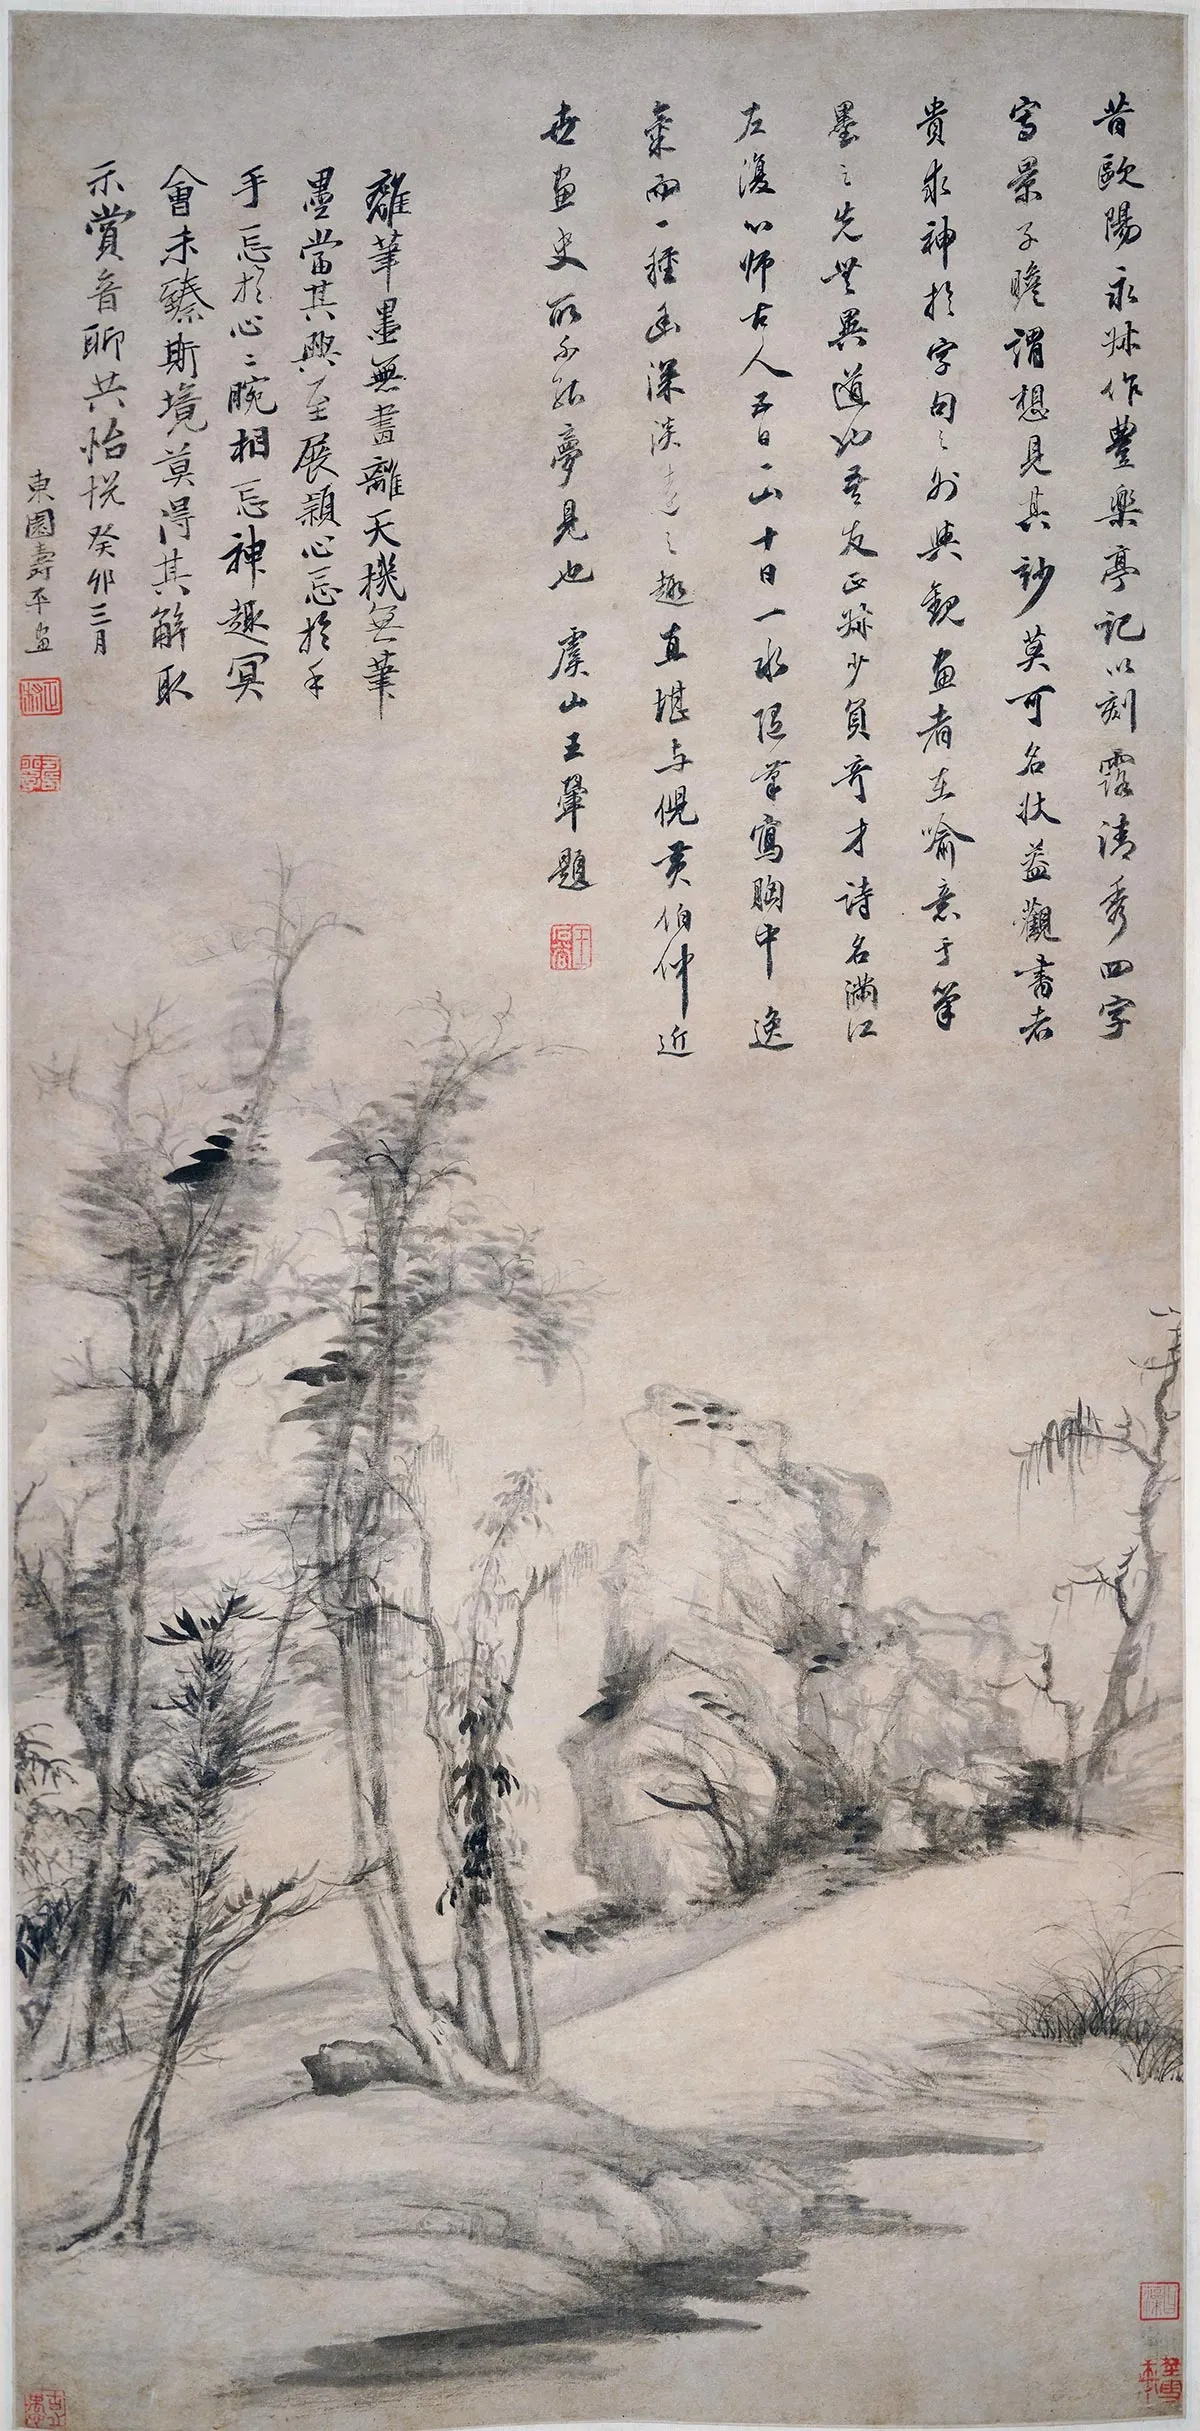 昔歐陽永叔作豐樂亭記以刻露清秀四字
寫景子瞻謂想見其妙莫可名狀蓋觀書者
貴求神於字句之外與觀畫者在喻意于筆
墨之先無異道也吾友正叔少負奇才詩名滿江
左復以師古人五日一山十日一水隨筆寫胸中逸
氣而一種幽深淡遠之趣直堪與倪黃伯仲近
世畫史所不能夢見也 虞山王翬題
離筆墨無畫離天機無筆
墨當其興至展穎心忘於手
手忘於心心腕相忘神趣冥
會未臻斯境莫得其解取
示賞音聊共怡悅癸卯三月
東園壽平畫